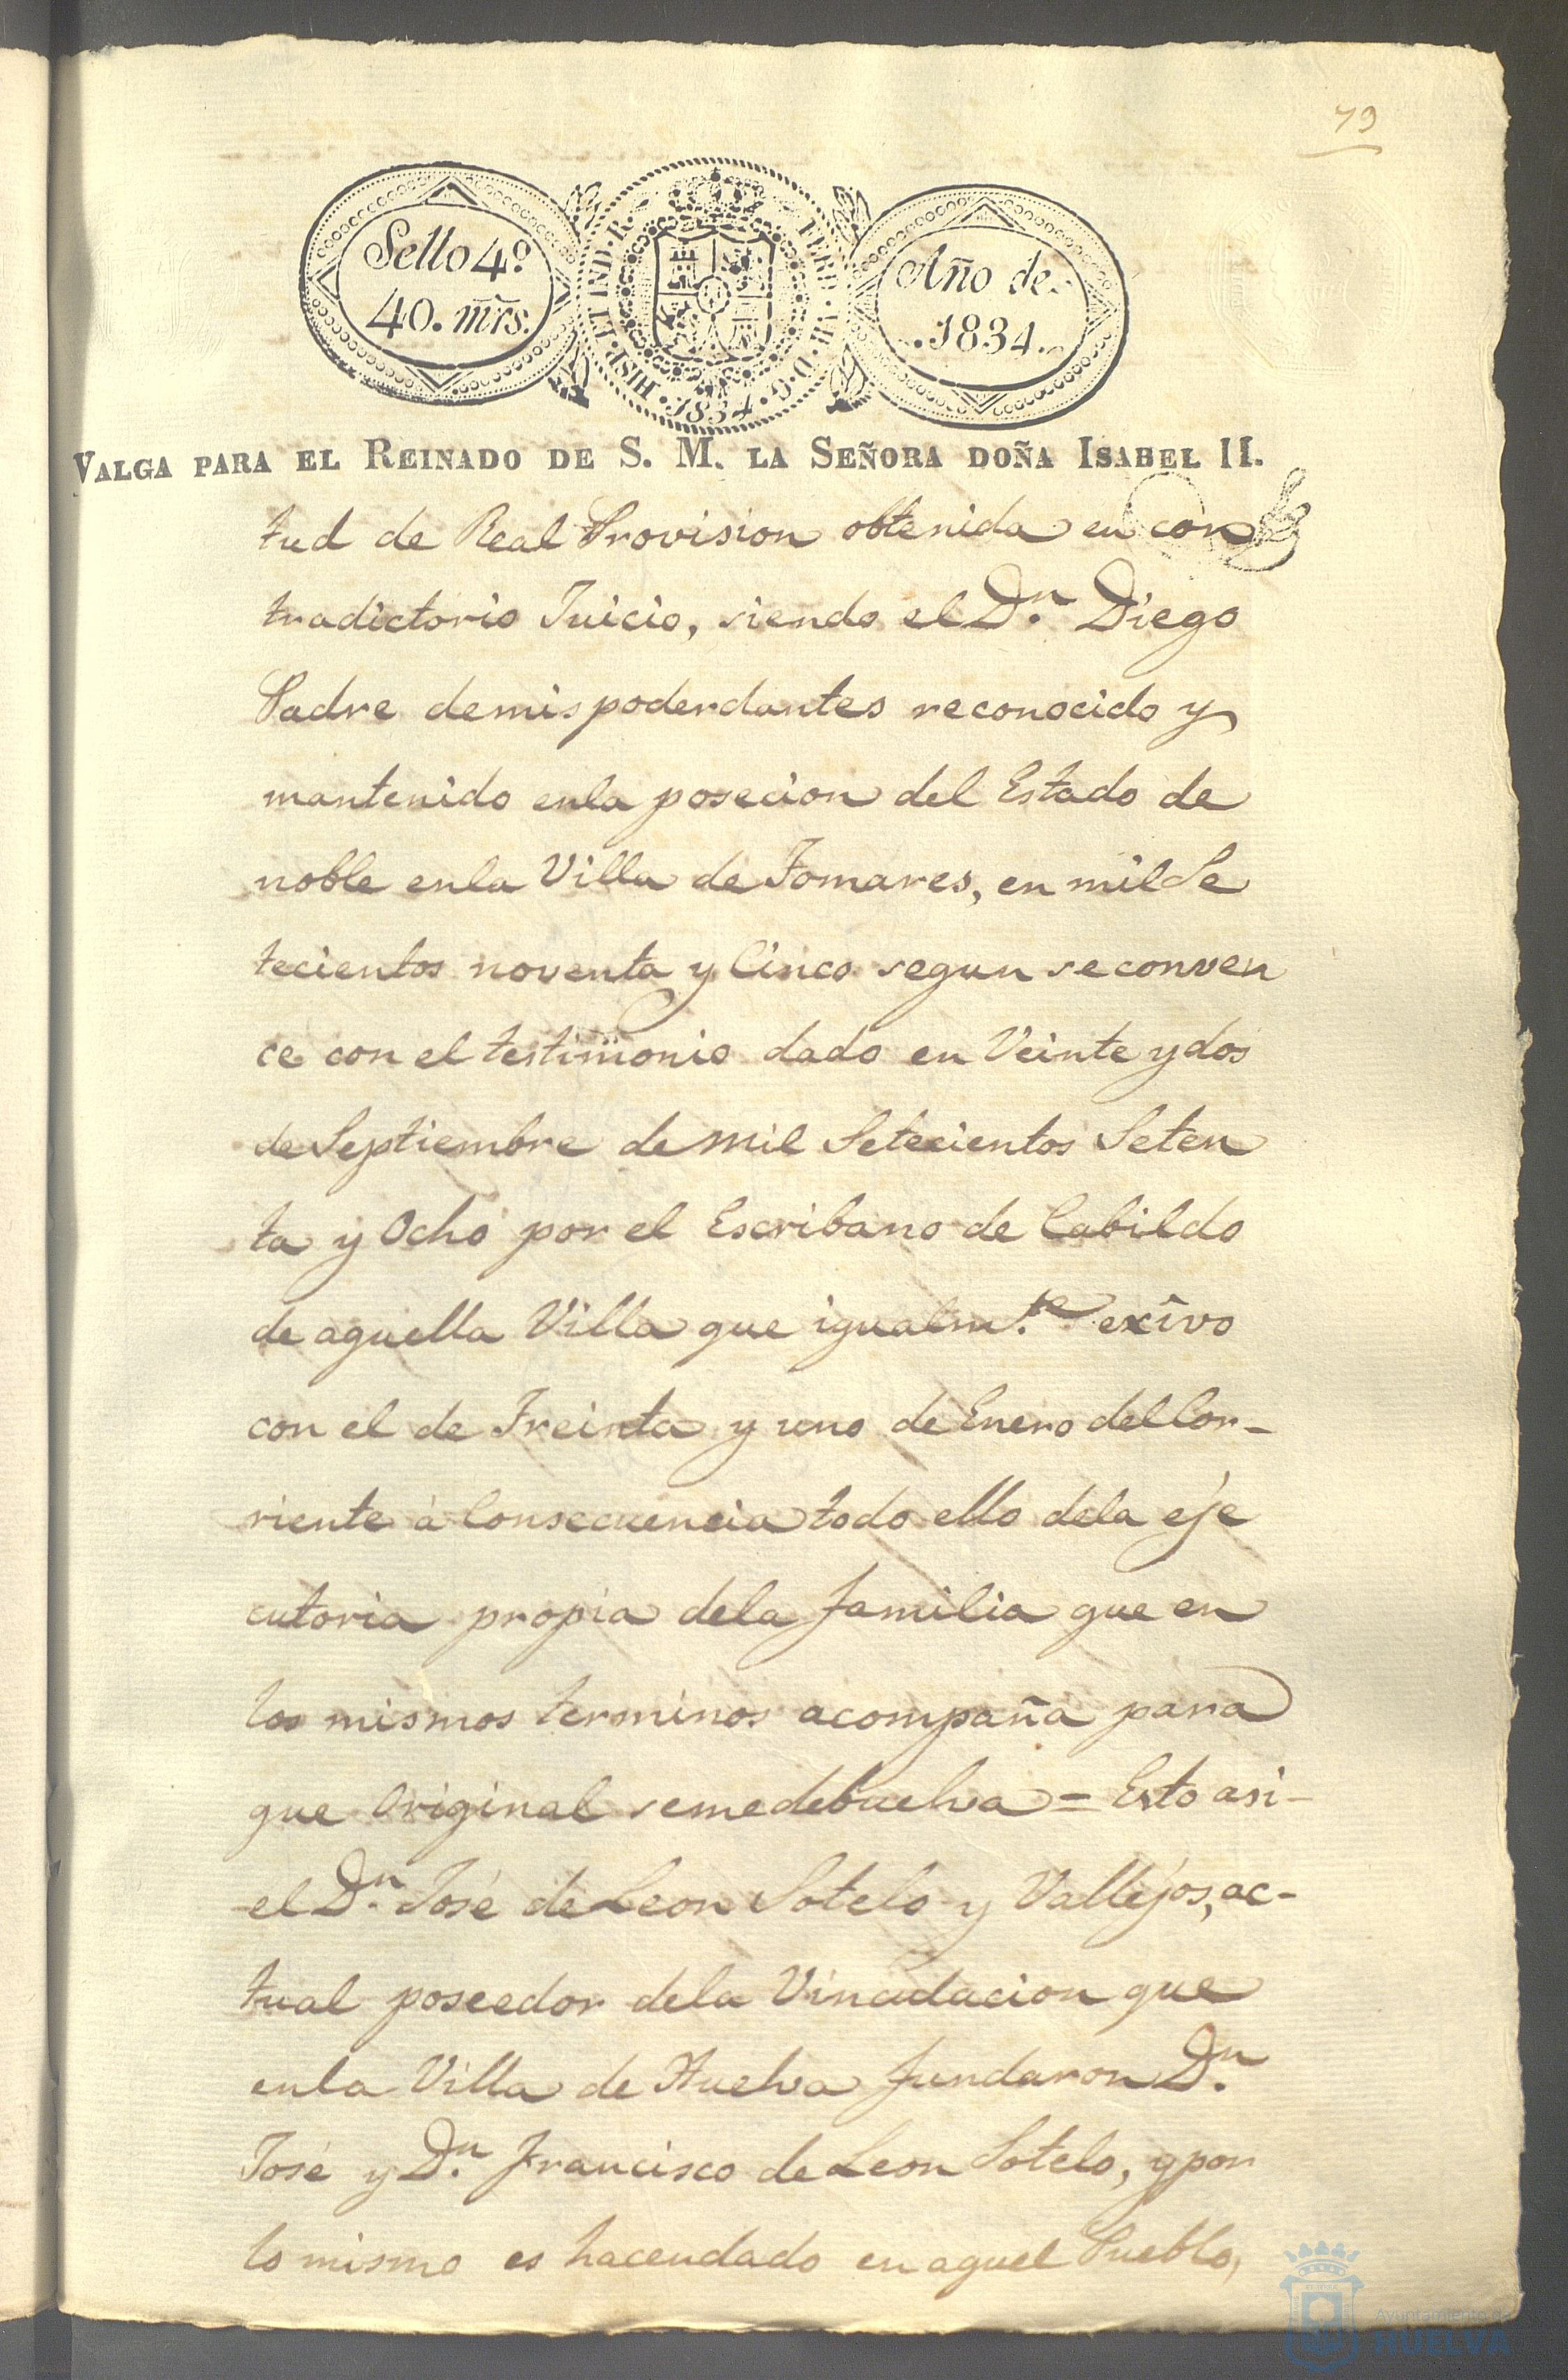 79
Sello 4º
40. mrs.
HISP. ET IND. R.
FERD. VII. D. G.
1834
Año de
1834.
VALGA PARA EL REINADO DE S. M. LA SEÑORA DOÑA ISABEL II.
tud de Real Provision obtenida en con
tradictorio Juicio, siendo el Dn. Diego
Padre demis poderdantes reconocido y
mantenido enla posecion del Estado de
noble enla Villa de Tomares, en mil Se
tecientos noventa y Cinco segun se conven
ce con el testimonio dado en Veinte y dos
de Septiembre de mil Setecientos Seten
ta y Ocho por el Escribano de Cabildo
de aquella Villa que igualm.te exivo
con el de Treinta y uno de Enero del Cor-
riente á Consecuencia todo ello dela eje
cutoria propia dela familia que en
los mismos terminos acompaña para
que Original semedebuelva = Esto asi-
el Dn. José de Leon Sotelo y Vallejos, ac-
tual poseedor dela Vinculacion que
enla Villa de Huelva fundaron Dn.
José y Dn. Francisco de Leon Sotelo, y por
lo mismo es hacendado en aquel Pueblo,
Ayuntamiento de
HUELVA